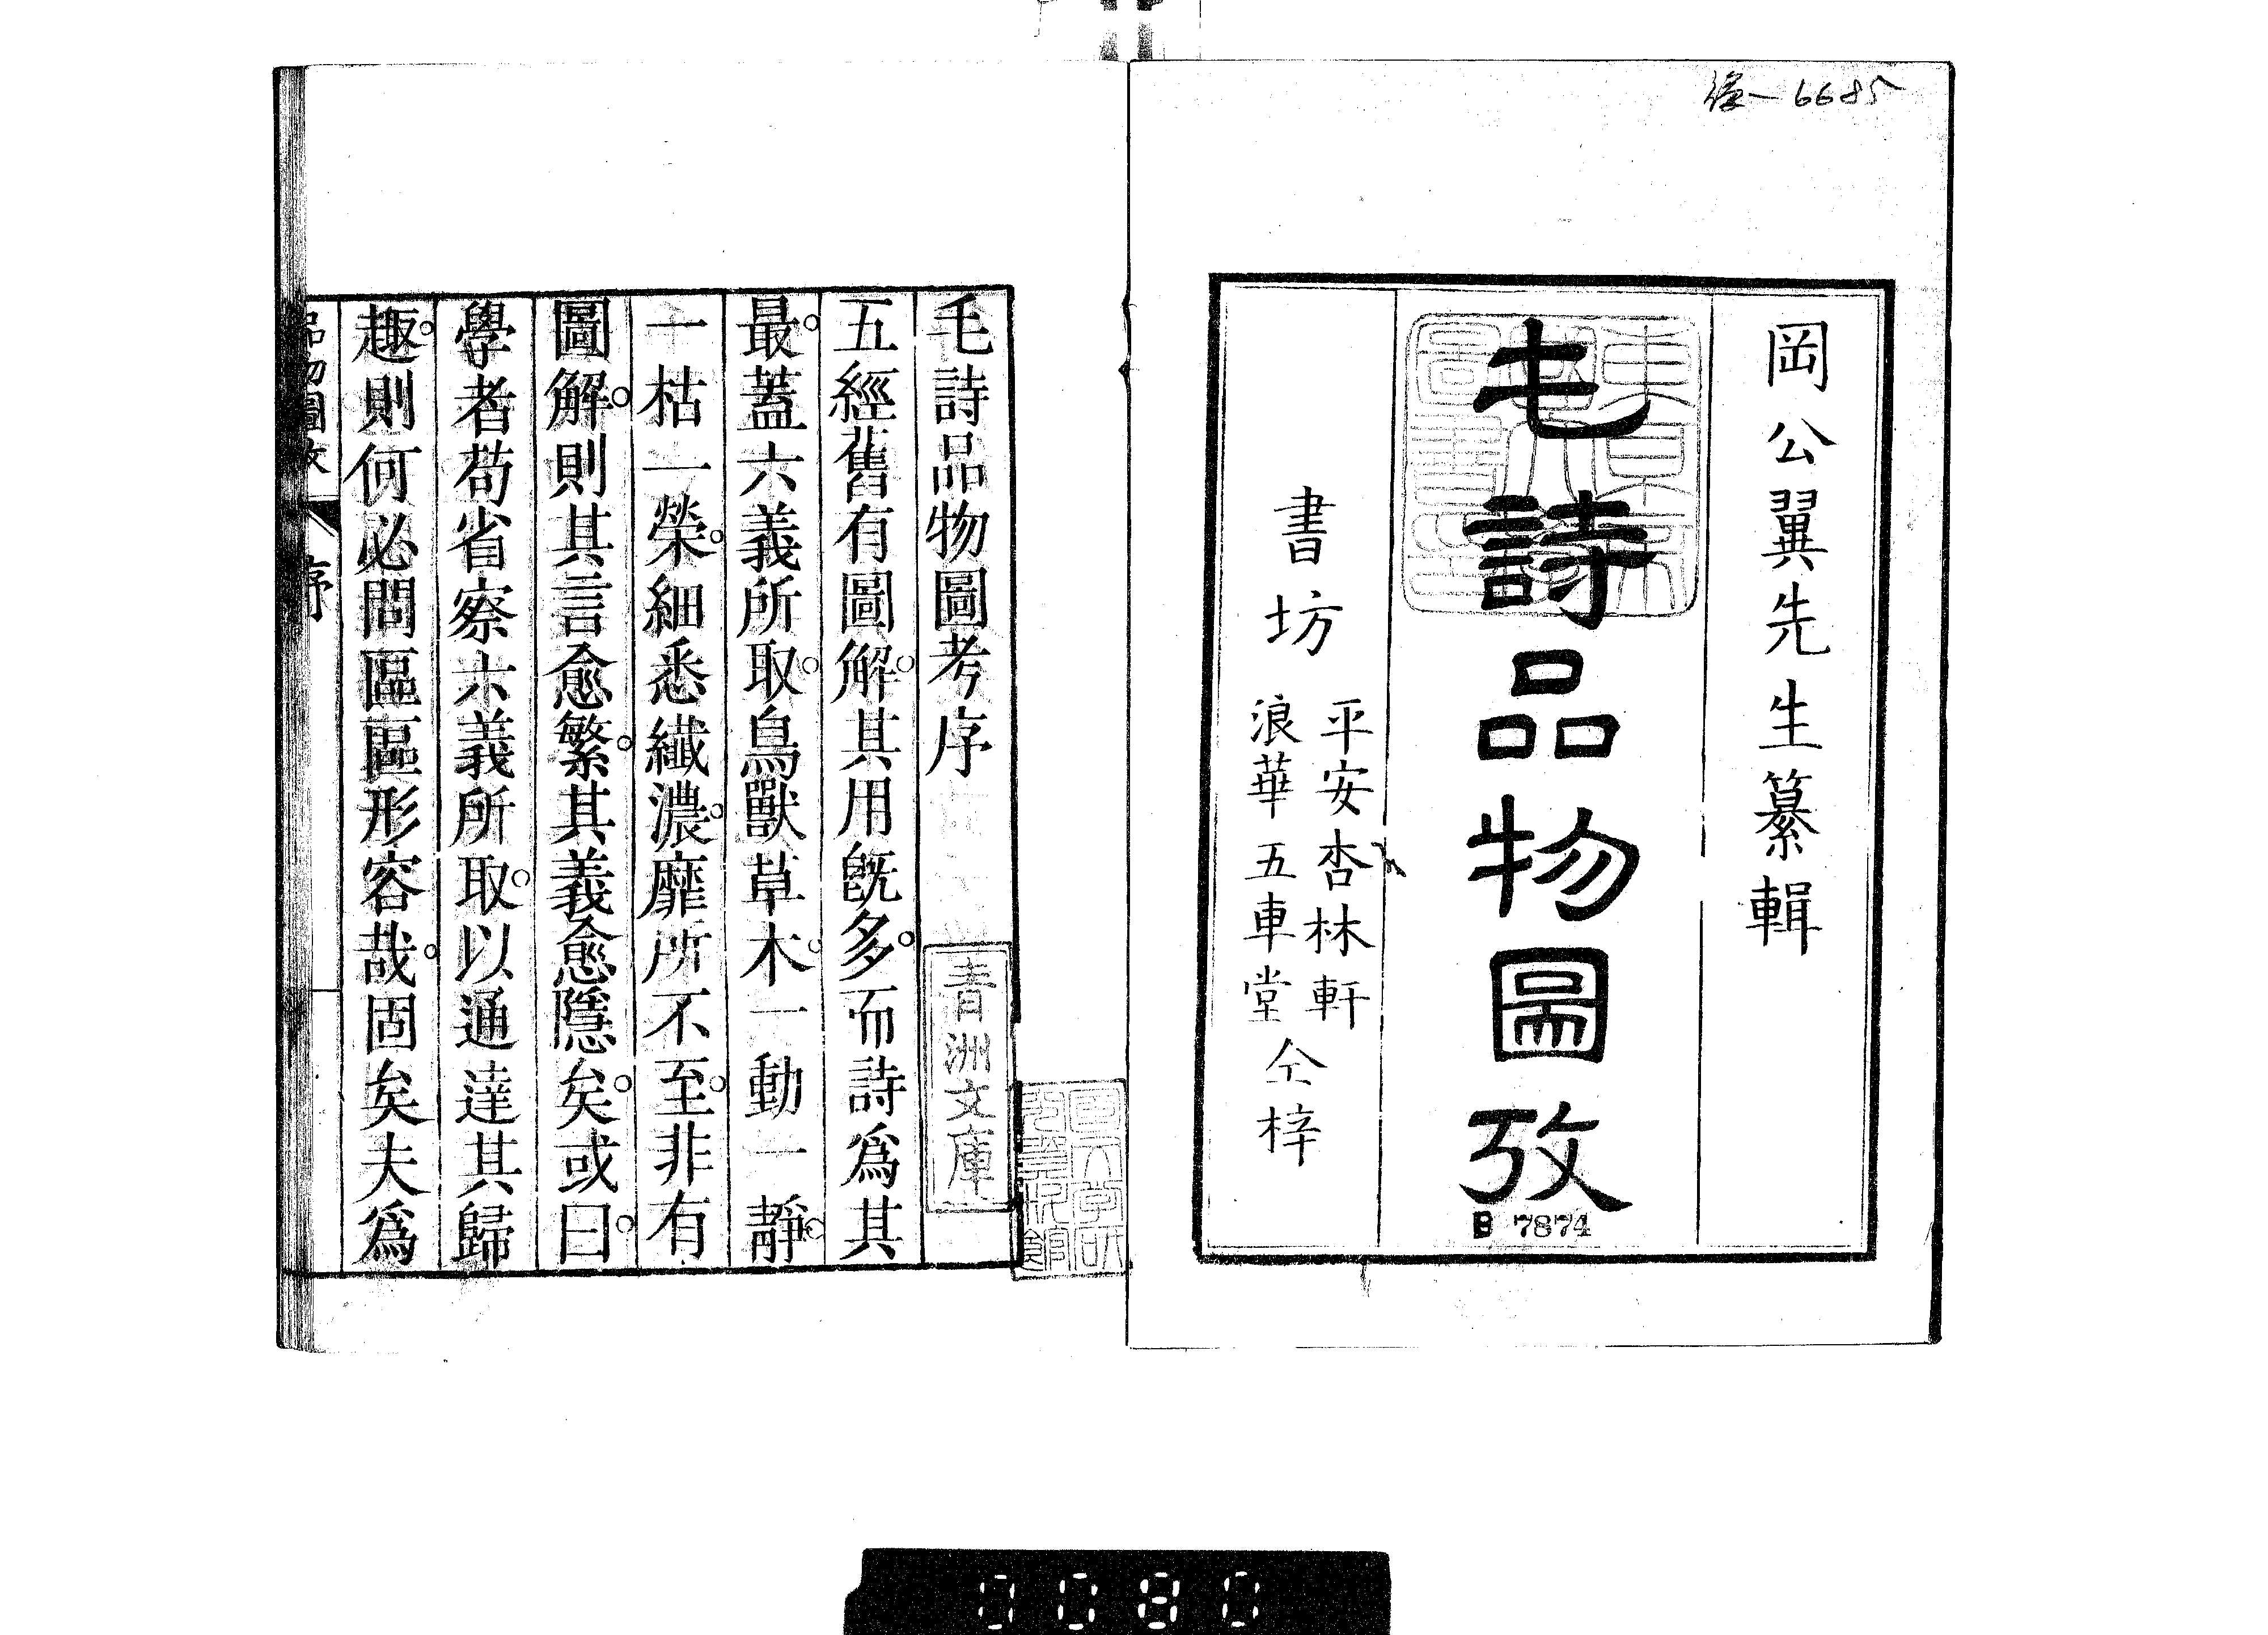 後一6685
岡公翼先生纂輯
毛詩品物圖攷
B 7874
書坊
平安杏林軒
浪華五車堂
仝梓
毛詩品物圖考序
青洲文庫
五經舊有圖解。其用旣多。而詩爲其
最。蓋六義所取。鳥獸草木。一動一靜。
一枯一榮。細悉纖濃。靡所不至。非有
圖解。則其言愈繁。其義愈隱矣。或曰。
學者苟省察六義所取。以通達其歸
趣。則何必問區區形容哉。固矣夫爲
品物圖攷 序
0080